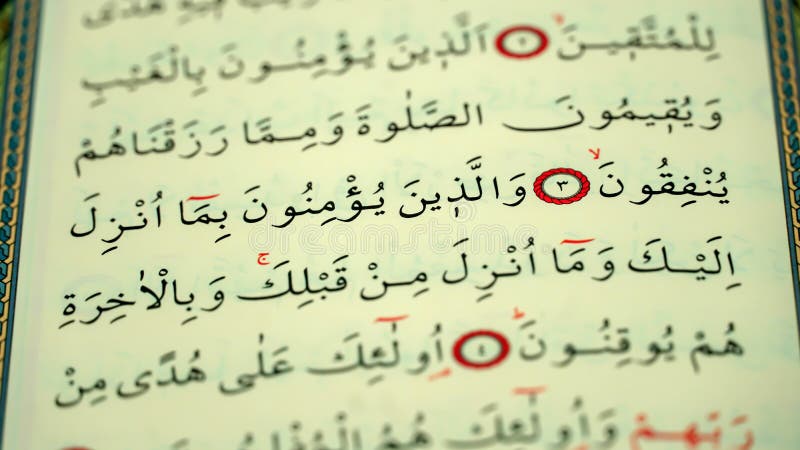 لِلْمُتَّقٖينَۙ ﴿٢﴾ اَلَّذٖينَ يُؤْمِنُونَ بِالْغَيْبِ
وَيُقٖيمُونَ الصَّلٰوةَ وَمِمَّا رَزَقْنَاهُمْ
يُنْفِقُونَۙ ﴿٣﴾ وَالَّذٖينَ يُؤْمِنُونَ بِمَٓا اُنْزِلَ
اِلَيْكَ وَمَٓا اُنْزِلَ مِنْ قَبْلِكَۚ وَبِالْاٰخِرَةِ
هُمْ يُوقِنُونَؕ ﴿٤﴾ اُو۬لٰٓئِكَ عَلٰى هُدًى مِنْ
رَبِّهِمْ وَاُو۬لٰٓئِكَ هُمُ الْمُفْلِحُونَ